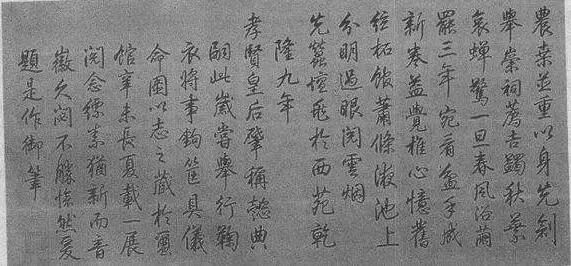 農桑並重以身先剏
舉崇祠薦吉蠲秋葉
哀蟬驚一旦春風浴繭
罷三年宛看盆手成
新卷益覺椎心憶舊
絃柘館蕭條液池上
分明過眼閱雲烟
先蠶壇成於西苑乾
隆九年
孝賢皇后肇稱懿典
嗣此歲嘗舉行鞠
衣將事鉤筐具儀
命圖以志之藏於蠶
館辛未長夏載一展
閱念縹素猶新而音
徽久閟不勝悵然爰
題是作御筆